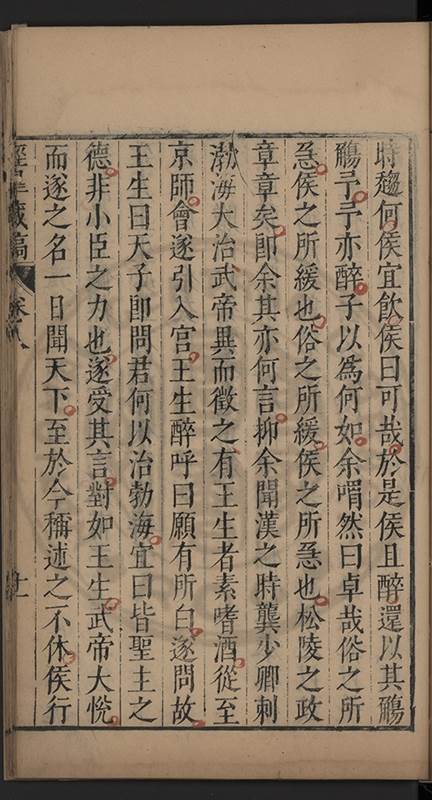 時趨何侯宜飲侯曰可哉於是侯且醉還以其觴
觴予予亦醉子以為何如余喟然曰卓哉俗之所
急侯之所緩也俗之所緩侯之所急也松陵之政
章章矣即余其亦何言抑余聞漢之時龔少卿刺
渤海大治武帝異而徵之有王生者素嗜酒從至
京師會遂引入宮王生醉呼曰願有所白遂問故
王生曰天子即問君何以治勃海宜曰皆聖主之
德非小臣之力也遂受其言對如王生武帝大悅
而遂之名一日聞天下至於今稱述之不休侯行
藏稿 卷八 十一